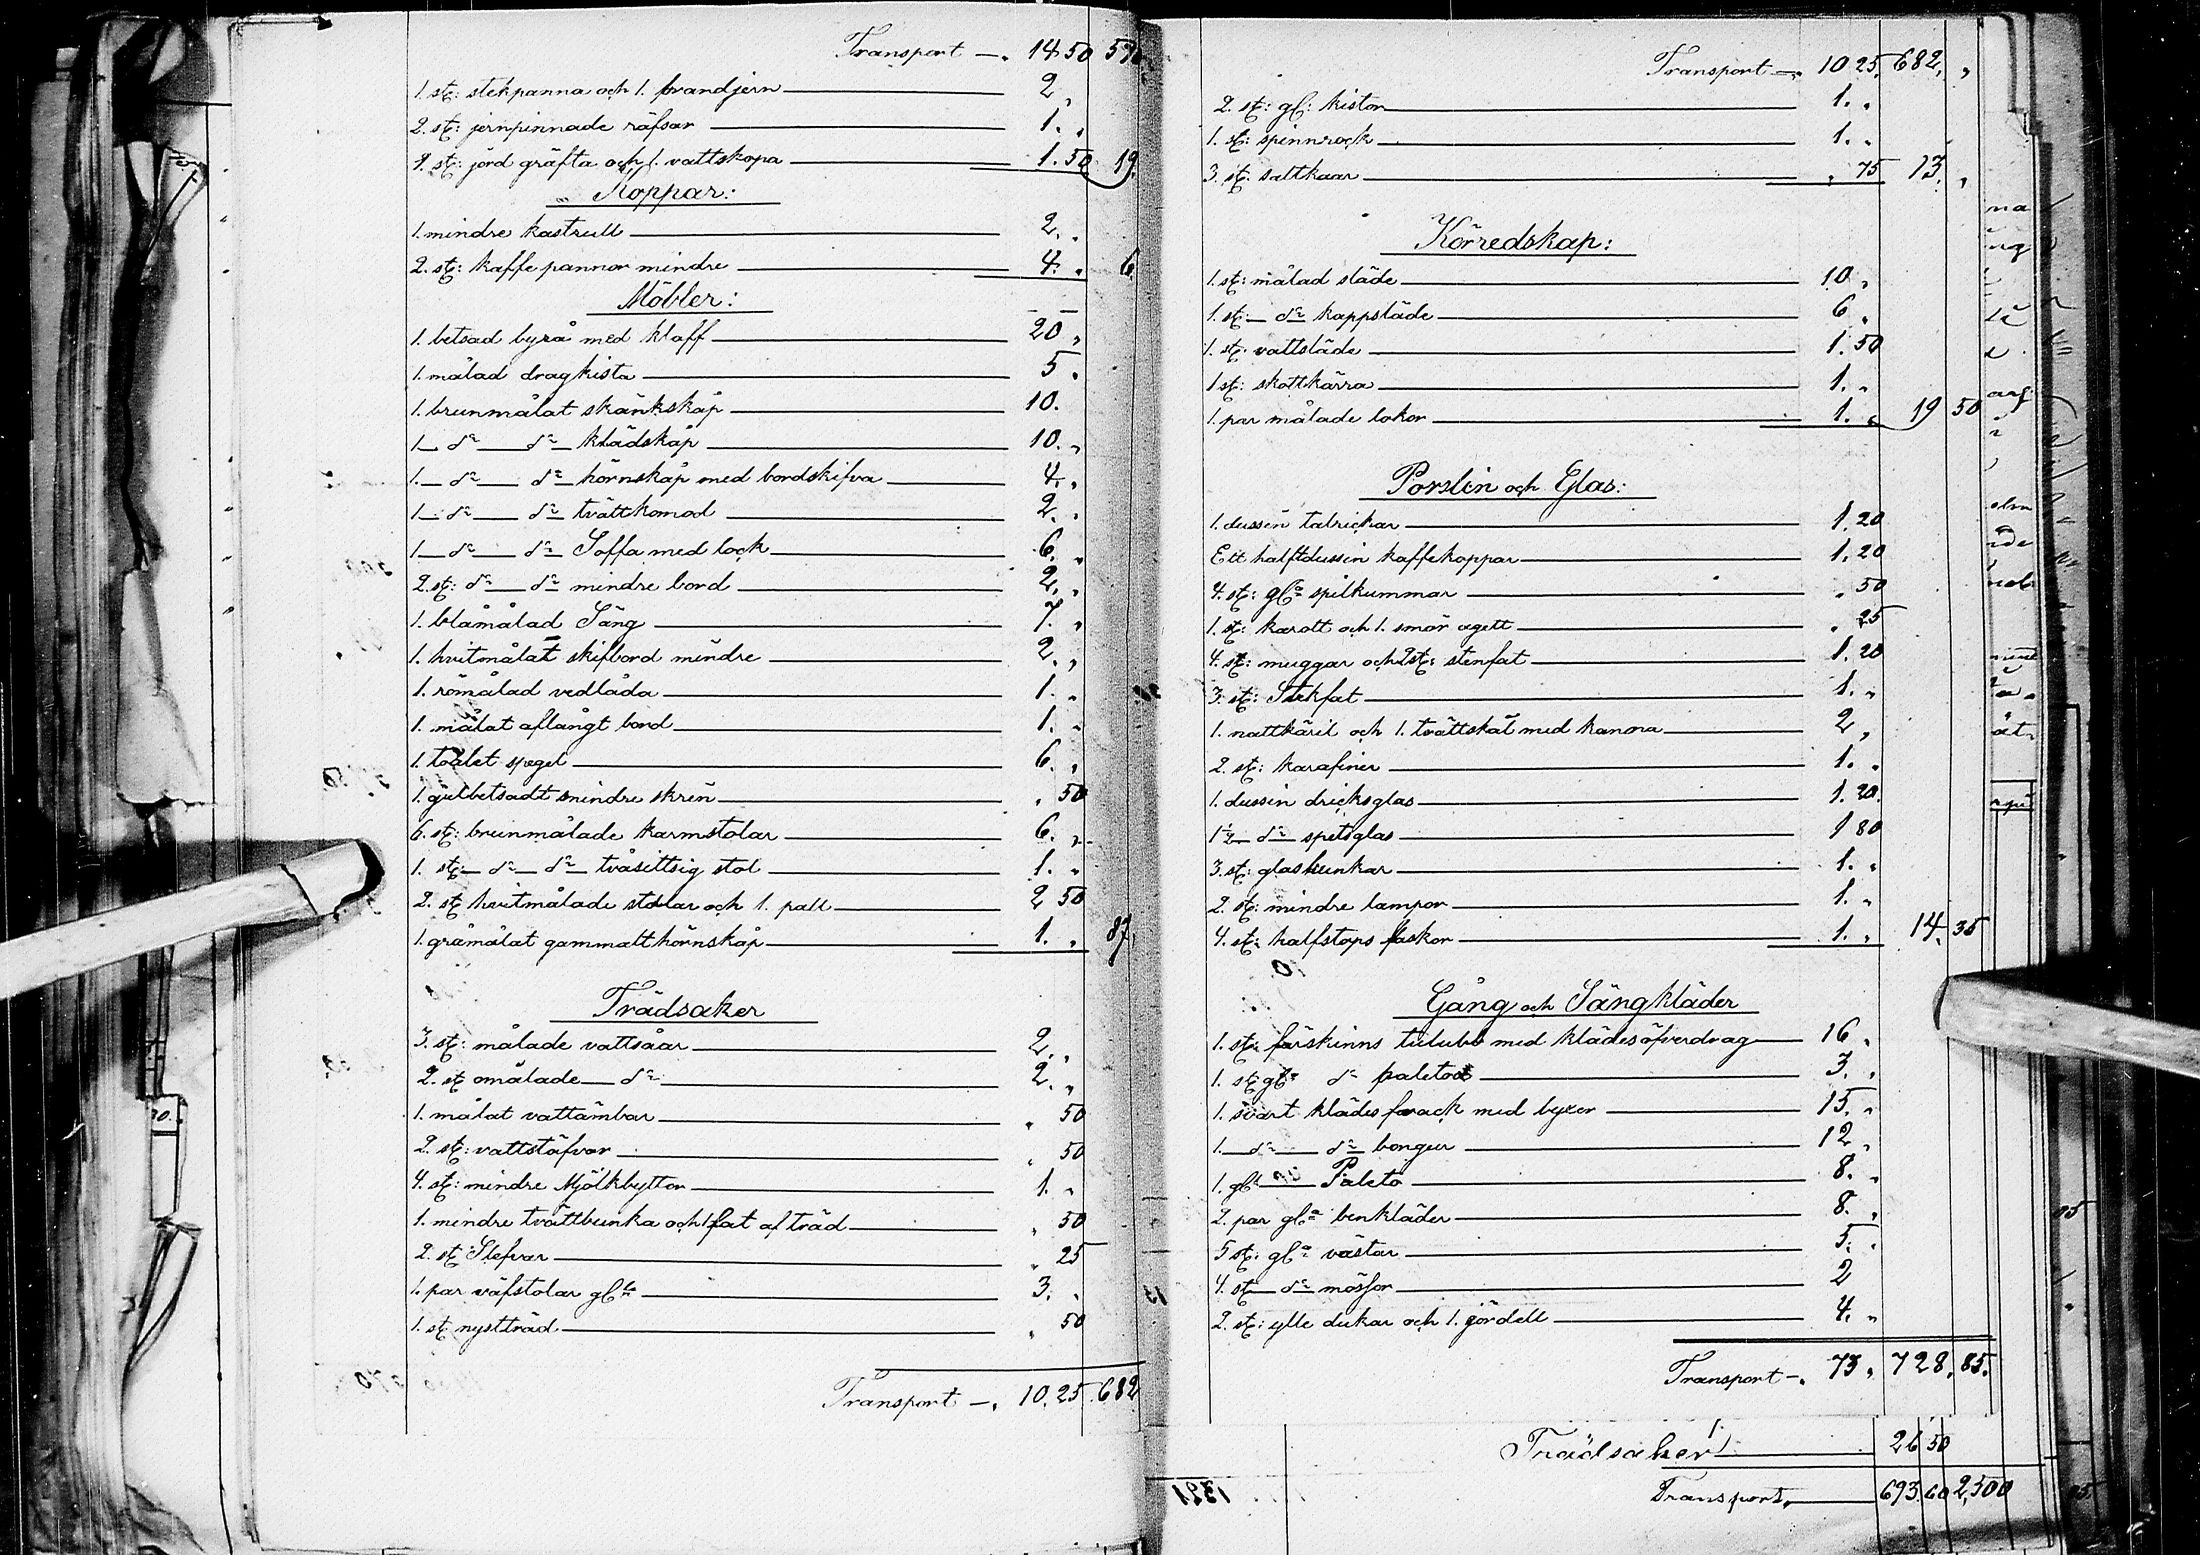 Transport —. 14 50 570
1. st: stekpanna och 1. brandjern 2 „
2. st: jernpinnade räfsor 1. „
1. st: jord gräfta och 1. vattskopa 1. 50 19.
Koppar:
1. mindre kastrull 2. „
2. st: kaffepannor mindre 4. „ 6.
Möbler:
1. betsad byrå med klaff 20 „
1. målad dragkista 5 „
1. brunmålat skänkskåp 10.
1 — do — do — klädskåp 10. „
1. — do — do — hörnskåp med bordskifva 4. „
1 — do — do — tvättkomod 2. „
1 — do — do — Soffa med lock 6. „
2. st: do — do — mindre bord 2. „
1. blåmålad Säng 7. „
1. hvitmålat skifbord mindre 2. „
1. römålad vedlåda 1. „
1. målat aflångt bord 1. „
1. toalet spegel 6. „
1. gulbetsadt mindre skrin „ 50
6. st: brunmålade karmstolar 6. „
1. st: — do — do — tvåsittsig stol 1. „
2. st hvitmålade stolar och 1. pall 2 50
1. gråmålat gammalt hörnskåp 1. „ 87.
Trädsaker
3. st: målade vattsåar 2. „
2. st omålade — do 2. „
1. målat vattämbar „ 50
2. st: vattstäfvor „ 50
4. st: mindre Mjölkbyttor 1. „
1. mindre tvättbunka och 1 fat af träd „ 50
2. st Slefvar „ 25
1. par väfstolar gla 3. „
1. st nystträd „ 50
Transport —. 10. 25. 682
Transport —. 10 25. 682. „
2. st: gl: kistor 1. „
1. st: spinnrock 1. „
3. st: saltkaar „ 75 13. „
Körredskap:
1. st: målad släde 10 „
1. st: — do kappsläde 6 „
1. st: vattsläde 1. 50
1 st: skottkärra 1. „
1. par målade lokor 1. „ 19 50
Porslin och Glas:
1. dussin talrickar 1. 20
Ett halftdussin kaffekoppar 1. 20
4. st: gla spilkummar „ 50
1. st: karott och 1. smör agett „ 25
4. st: muggar och 2 st: stenfat 1. 20
3. st: Stekfat 1. „
1. nattkäril och 1. tvättskål med kanna 2 „
2. st: karafiner 1. „
1. dussin dricksglas 1. 20.
1 1/2 do spetsglas 1 80
3. st: glasbunkar 1. „
2. st: mindre lampor 1. „
4. st: halfstops flaskor 1. „ 14. 35
Gång och Sängkläder
1. st: fårskinns tulubb med klädesöfverdrag 16 „
1. st gla do paletot 3. „
1. svart klädes forack med byxor 15. „
1. — do — do bongur 12 „
1. gl: do Paleto 8. „
2. par gla benkläder 8. „
5 st: gla västar 5. „
4. st do mössor 2
2. st: ylle dukar och 1. gördell 4. „
Transport —. 73 „ 728. 85.
Trädsaker 26 50
Transport. 693 60 2,500